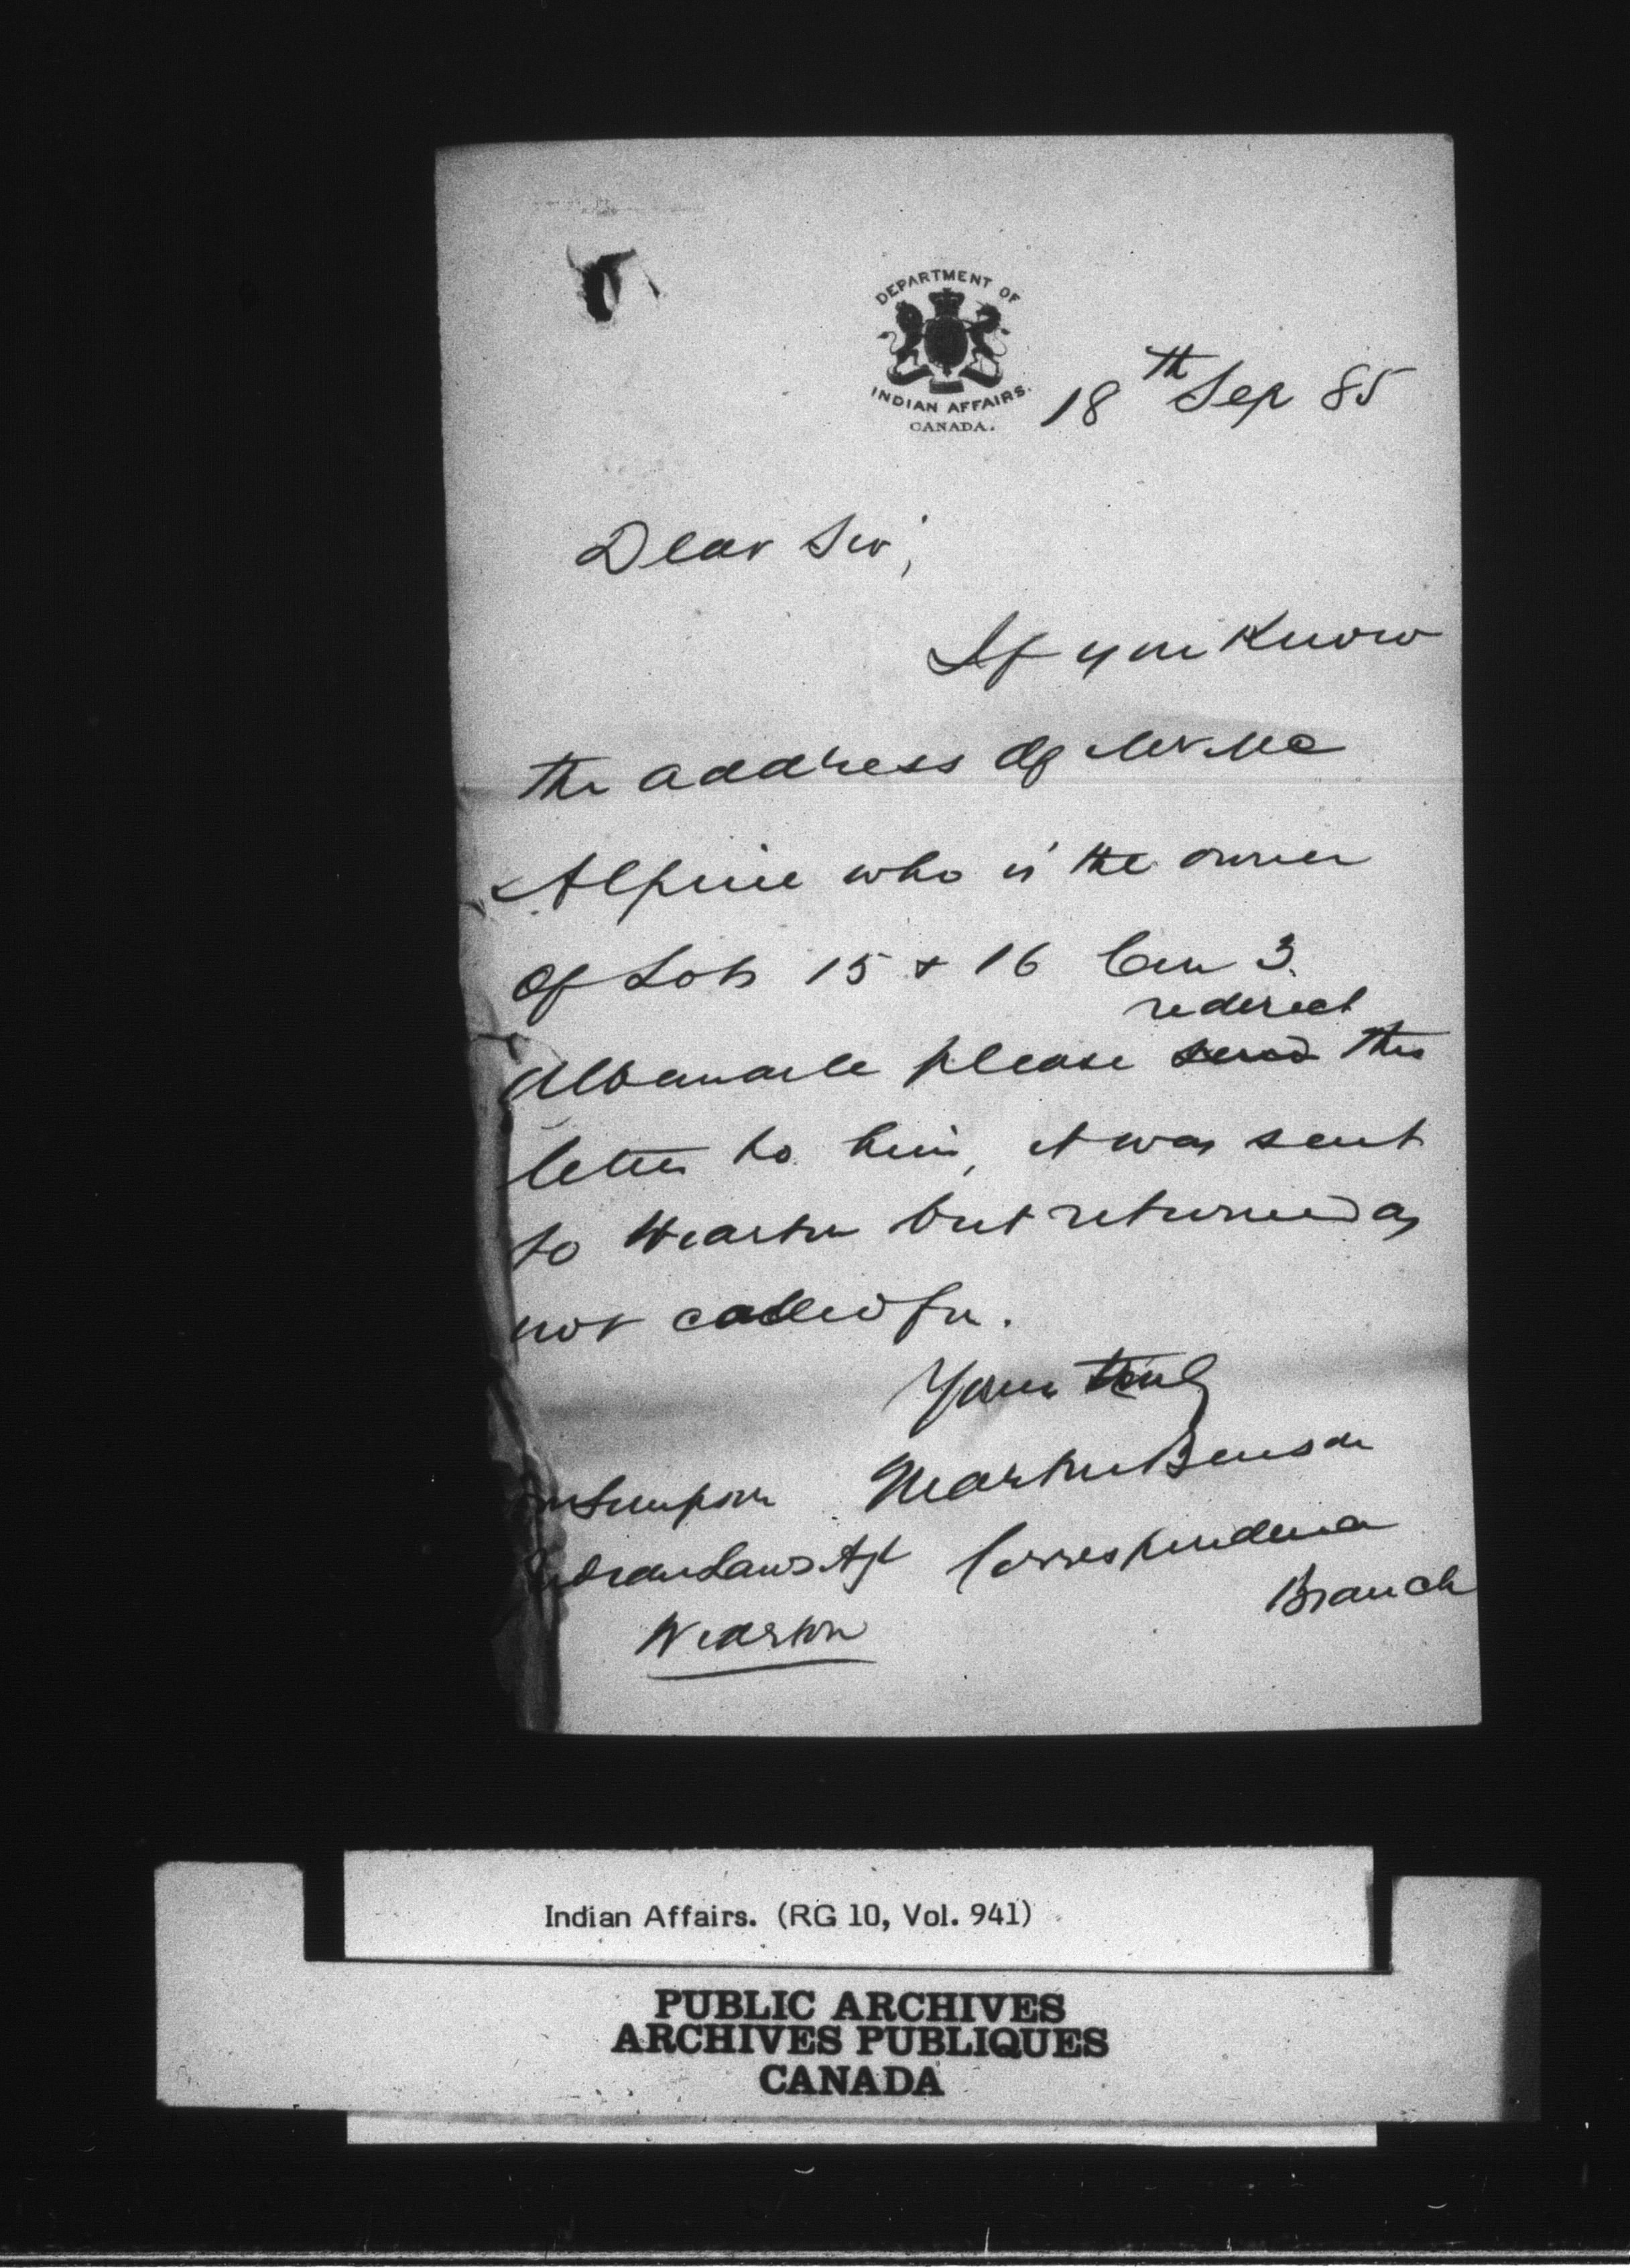 DEPARTMENT OF
INDIAN AFFAIRS.
CANADA.
18th Sep 85
Dear Sir,
If you know
the address of Mr Mc
Alpine who is the owner
of Lots 15 & 16 Con 3.
redirect
Albemarle please send this
letter to him, it was sent
to Wiarton but returned as
not called for.
Yours truly
Simpson Martin Benson
Indian Land Agt Correspondence
Branch
Wiarton
Indian Affairs. (RG 10, Vol. 941)
PUBLIC ARCHIVES
ARCHIVES PUBLIQUES
CANADA